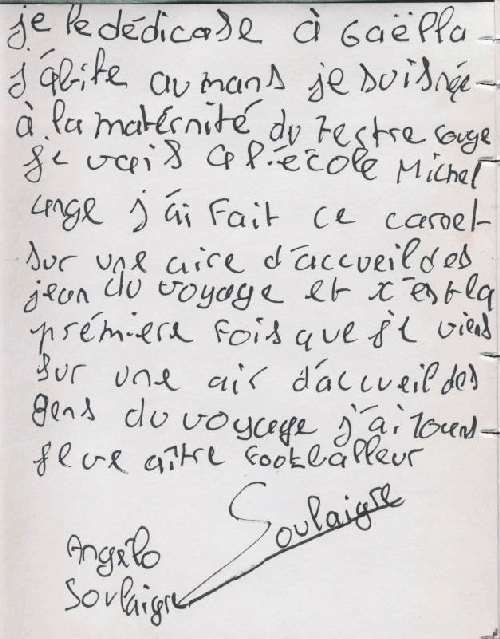 je le dédicase à Gaëlla
j'âbite au mans je suis née
à la matérnité du tertre rouge
je vais a l'école Michel
ange j'ai fait ce carnet
sur une aire d'accueil des
jean du voyage et c'est la
prémiere fois que je viens
sur une air d'accueil des
gens du voyage j'ai 10ans
je ve aître footballeur
Soulaigre
Angélo
Soulaigre